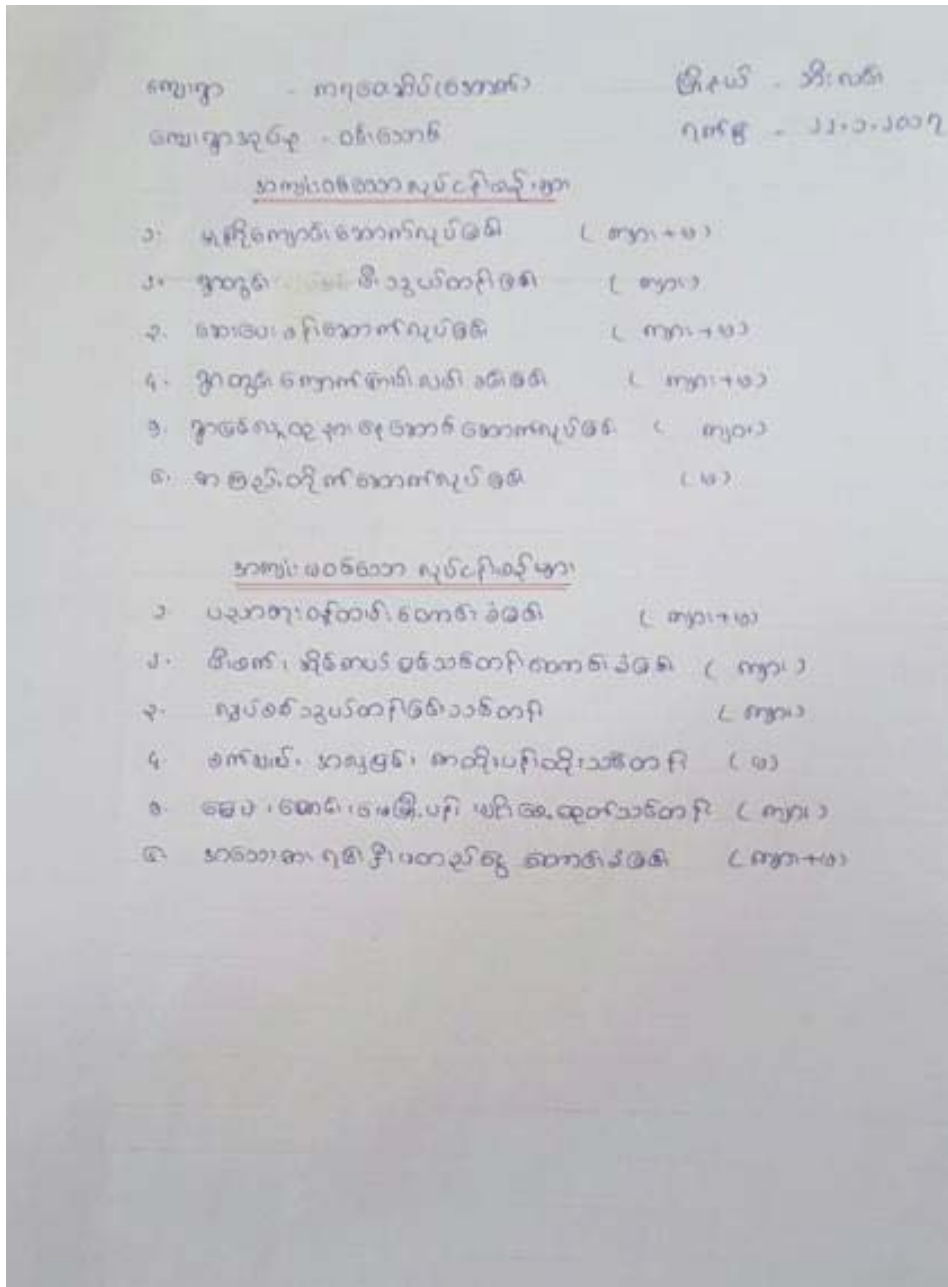 ကျေးရွာ - ကရဝေးဆိပ်(အောက်) မြို့နယ် - ဘီးလင်း
ကျေးရွာအုပ်စု - ဝင်းသောင် ရက်စွဲ - ၁၁.၁.၂၀၁၇
အကျုံးဝင်သော လုပ်ငန်းစဉ်များ
၁။ မူကြိုကျောင်းဆောက်လုပ်ခြင်း (ကျား+မ)
၂။ ရွာတွင်း မီးသွယ်တန်းခြင်း (ကျား)
၃။ ဆေးပေးခန်းဆောက်လုပ်ခြင်း (ကျား+မ)
၄။ ရွာတွင်း ကျောက်ကြမ်းလမ်းခင်းခြင်း (ကျား+မ)
၅။ ရွာမင်္လာ့ထု နားနေဆောင် ဆောက်လုပ်ခြင်း (ကျား)
၆။ စာကြည့်တိုက်ဆောက်လုပ်ခြင်း (မ)
အကျုံးမဝင်သော လုပ်ငန်းစဉ်များ
၁ ပညာရေးဝန်ထမ်းတောင်းခံခြင်း (ကျား+မ)
၂။ မီးဖက်၊ ဆိုင်းတပ် သင်တန်းတောင်းခံခြင်း (ကျား)
၃။ လျှပ်စစ်သွယ်တန်းခြင်းသင်တန်း (ကျား)
၄။ စက်ချုပ်၊ အလှပြင်၊ ဇာထိုးပန်းထိုးသင်တန်း (မ)
၅။ သင်တန်း (ကျား)
၆။ အသေးစား ရင်းနှီးမတည်ငွေ တောင်းခံခြင်း (ကျား+မ)